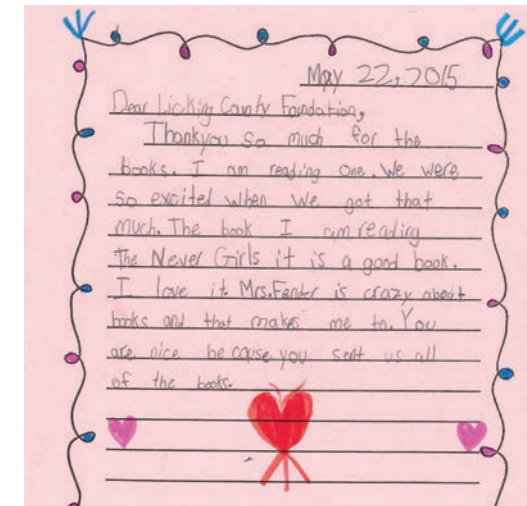 May 22, 2015
Dear Licking County Foundation,
Thankyou so much for the
books. I am reading one. We were
so excited when we got that
much. The book I am reading
the Never Girls it is a good book.
I love it. Mrs. Fender is crazy about
books and that makes me to. You
are nice because you sent us all
of the books.